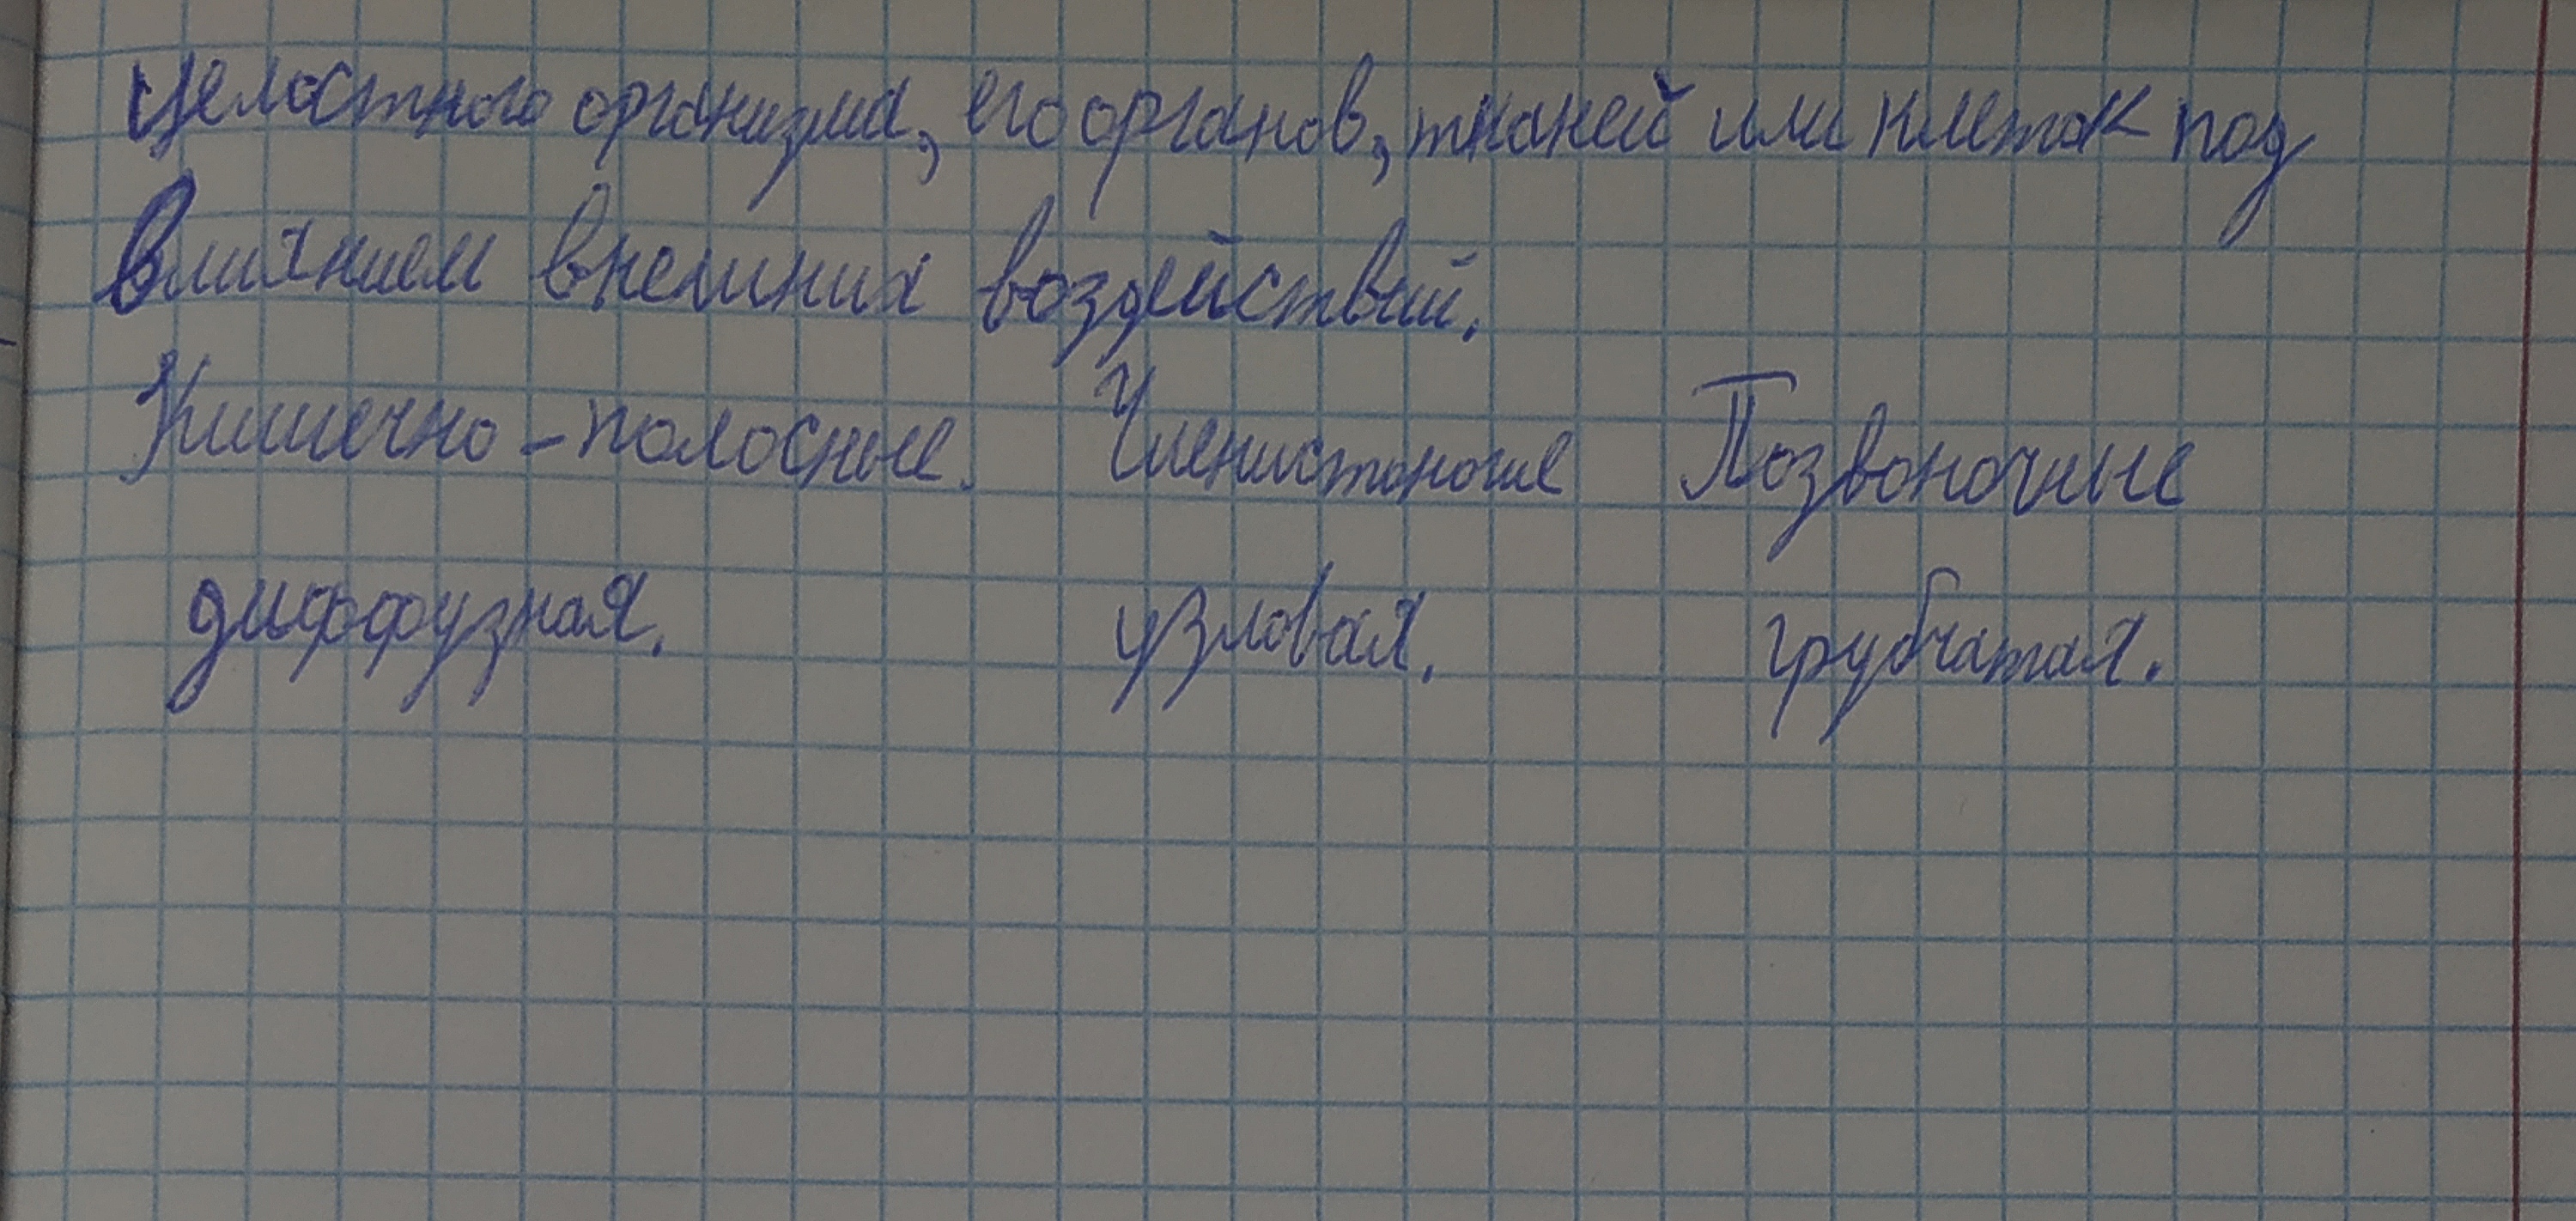 целостного организма, его органов, тканей или клеток под
влиянием внешних воздействий.
Кишечно-полосные. Членистоногие Позвоночные
диффузная. узловая. трубчатая.